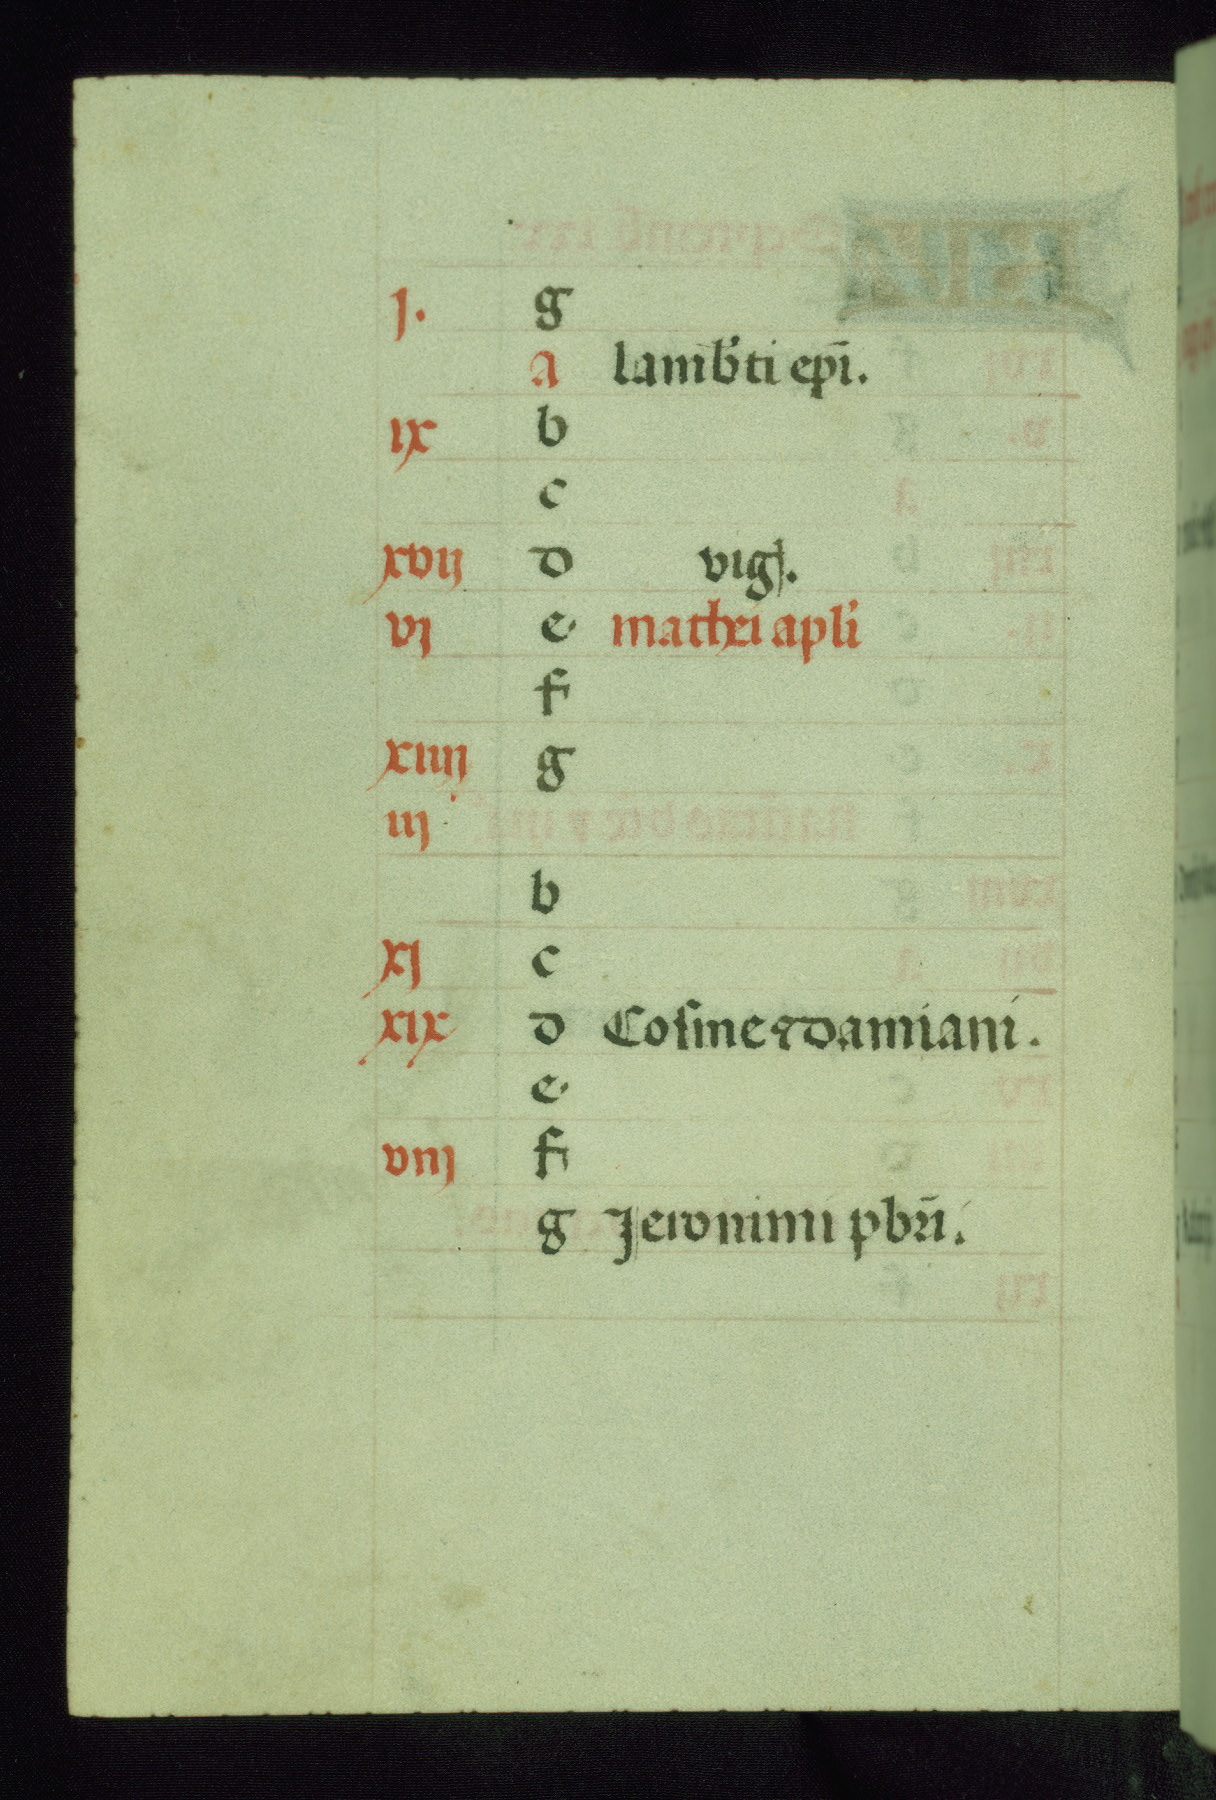 j. g
a lamb'ti ep̄i.
ix b
c
xvij d vigl.
vj e mathei apl'i
f
xiiij g
iij
b
xj c
xix d Cosme ⁊ damiani.
e
viij f
g Jeronimi pbr̄i.